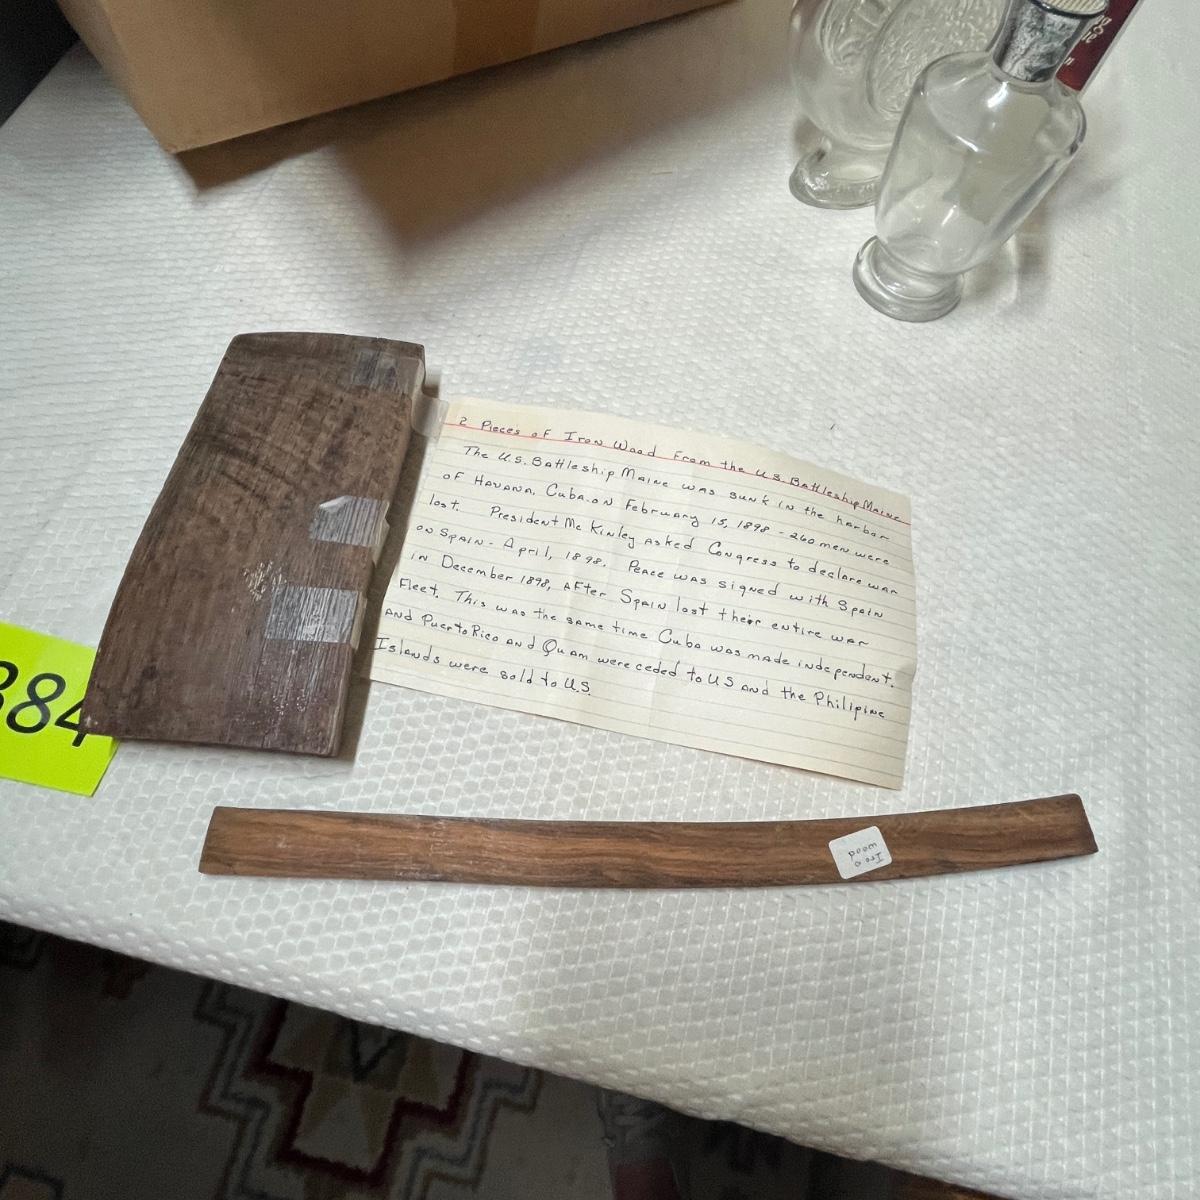 2 Pieces of Iron Wood From the U.S. Battleship Maine
The U.S. Battleship Maine was sunk in the harbor
of Havana, Cuba. on February 15, 1898 - 260 men were
lost. President McKinley asked Congress to declare war
on Spain - April, 1898. Peace was signed with Spain
in December 1898, after Spain lost their entire war
Fleet. This was the same time Cuba was made independent.
And Puerto Rico and Quam were ceded to US and the Philipine
Islands were sold to U.S.
Iron
wood
384